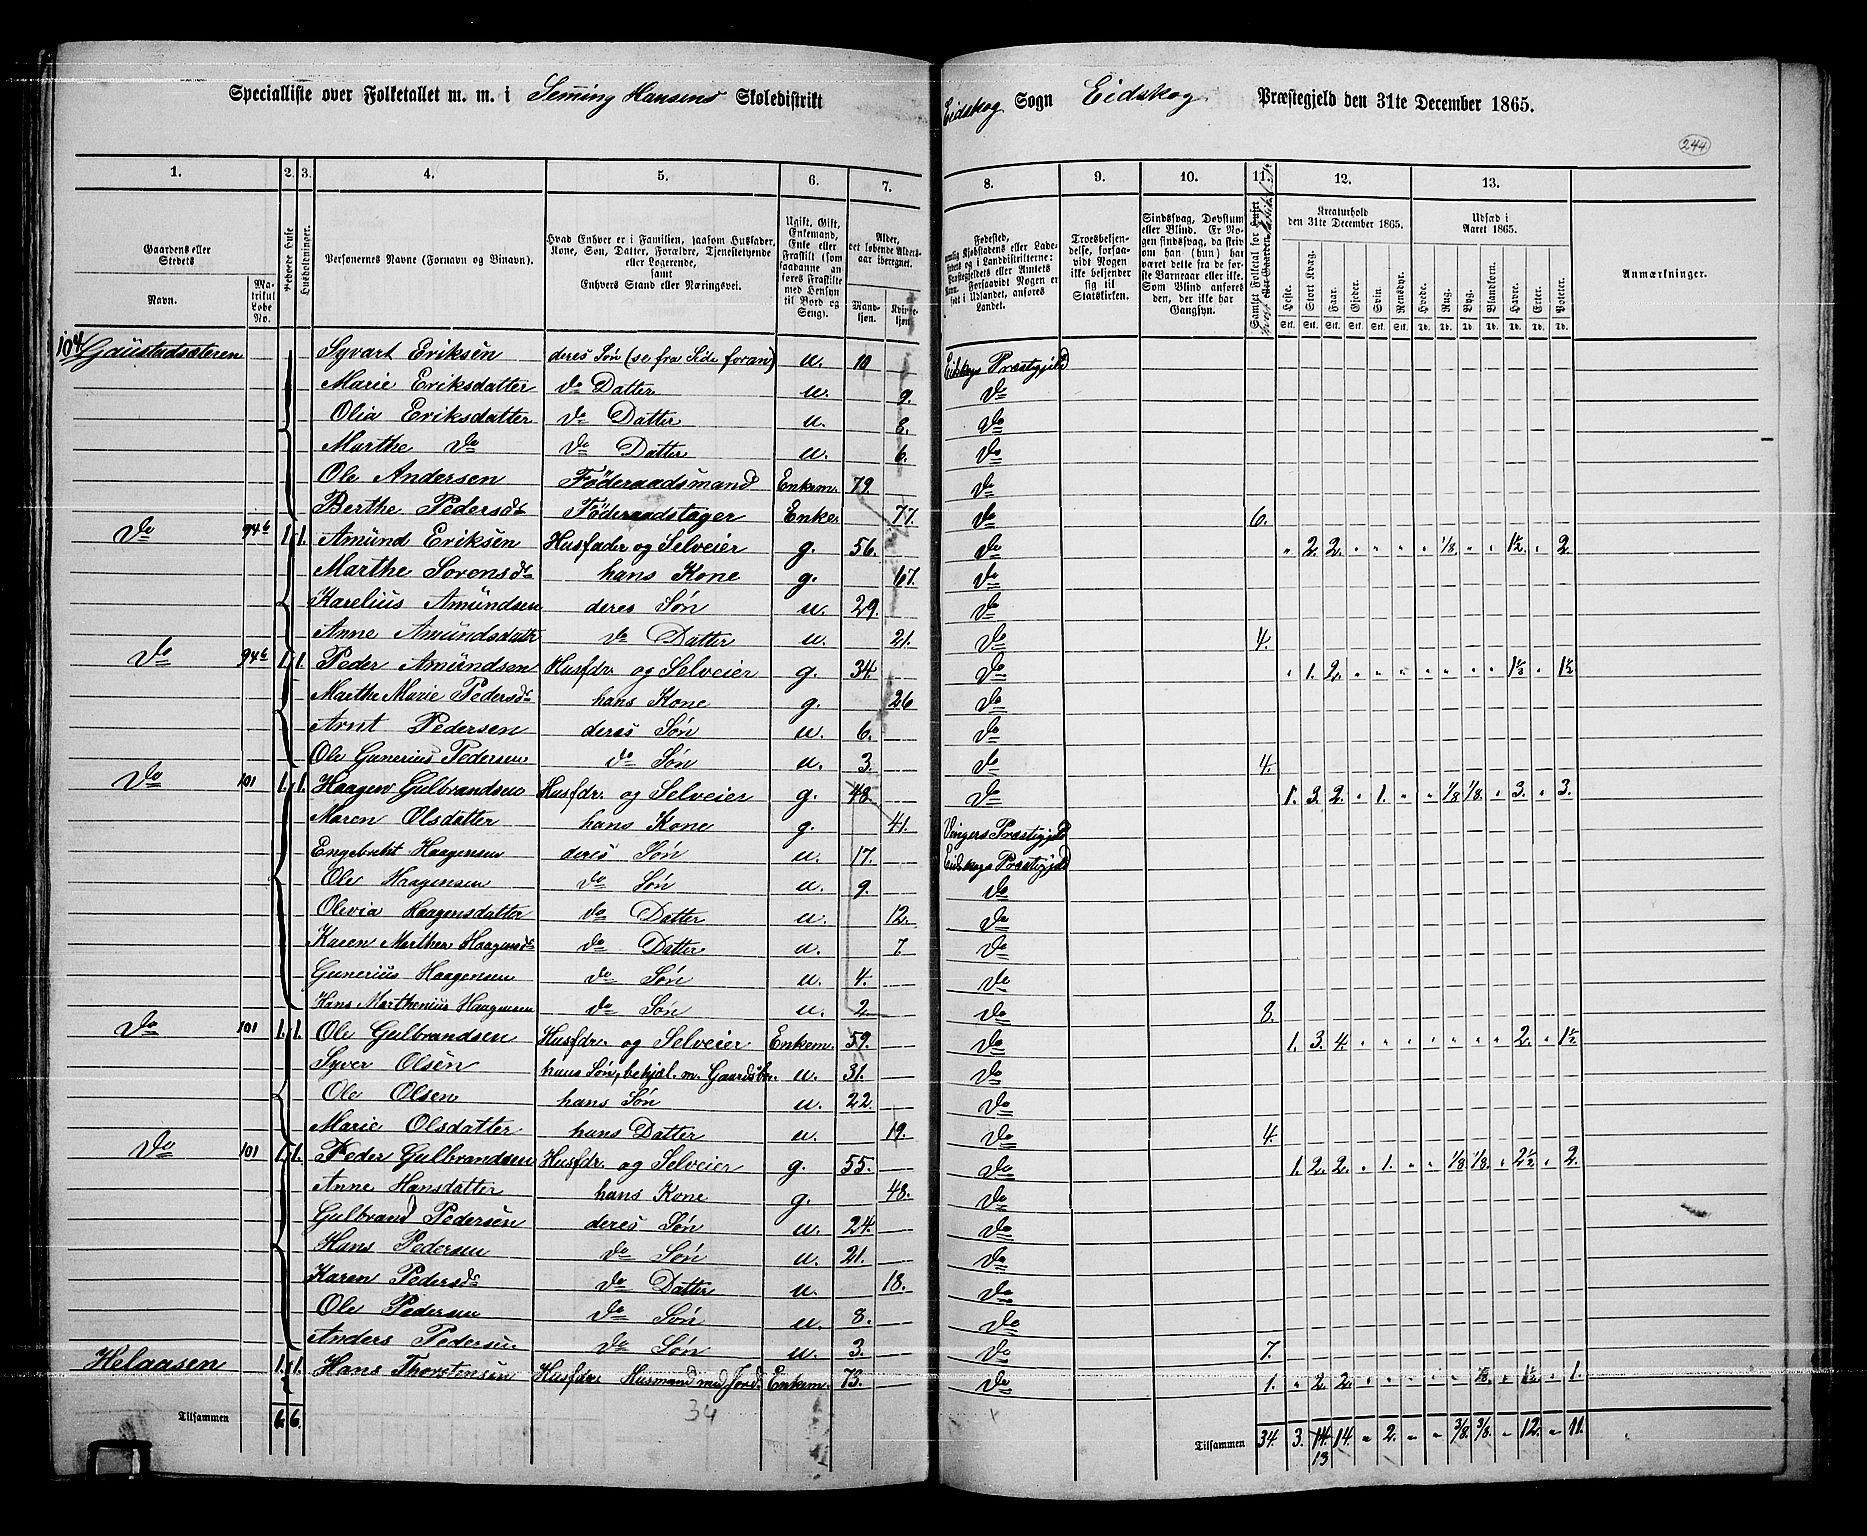 Specialliste over Folketallet m. m. i Semming Hansens Skoledistrikt Eidskog Sogn Eidskog Præstegjeld den 31te December 1865.
244
1. 2. 3. 4. 5. 6. 7. 8. 9. 10. 11. 12. 13.
Gaardens eller Stedets
Navn. Matrikul Løbe No.
Beboede Huse
Husholdninger.
Personernes Navne (Fornavn og Tilnavn).
Hvad Enhver er i Familien, saasom Husfader, Kone, Søn, Datter, Forældre, Tjenestetyende eller Logerende, samt Enhvers Stand eller Næringsvei.
Ugift, Gift, Enkemand, Enke eller Fraskilt (som saadanne anføres Fraskilte med Hensyn til Bord og Seng).
Alder, det løbende Aldersaar iberegnet.
Mandkjøn. Kvindekjøn.
Troesbekjendelse, forsaavidt Nogen ikke bekjender sig til Statskirken.
Sindssvag, Døvstum eller Blind. Er Nogen sindssvag, da skrives om han (hun) har været det fra de første Barneaar eller ikke. Som Blind anføres den, der ikke har Gangsyn.
Kreaturhold den 31te December 1865.
Heste. Stort Kvæg. Faar. Gjeder. Svin. Rensdyr.
Udsæd i Aaret 1865.
Hvede. Rug. Byg. Blandkorn. Havre. Erter. Poteter.
Anmærkninger.
104 Gaustadsæteren Syvart Eriksen deres Søn (se fra Side foran) u. 10 Eidskogs Præstegjeld
Marie Eriksdatter do Datter u. 9. do
Olia Eriksdatter do Datter u. 8. do
Marthe do do Datter u. 6. do
Ole Andersen Föderaadsmand Enkem. 79. do
Berthe Pedersdr Föderaadstager Enke. 77. do 6.
do 94b 1. 1. Amund Eriksen Husfader og Selveier g. 56. do " 2. 2. " " " " 1/8 " " 1½ " 2
Marthe Sorensdr hans Kone g. 67. do
Karelius Amundsen deres Søn u. 29. do
Anne Amundsdatr do Datter u. 21. do 4.
do 94b 1. 1. Peder Amundsen Husfdr. og Selveier g. 34. do " 1. 2. " " " " " " " 1½ " 1½
Marthe Marie Pedersdr hans Kone g. 26 do
Arnt Pedersen deres Søn u. 6. do
Ole Gunerius Pedersen do Søn u. 3. do 4.
do 101 1. 1. Haagen Gulbrandsen Husfdr. og Selveier g. 48 do 1. 3. 2. " 1. " " 1/8 1/8 " 3. " 3.
Maren Olsdatter hans Kone g. 41. Vingers Præstegjeld
Engebrekt Haagensen deres Søn u. 17. Eidskogs Præstegjeld
Ole Haagensen do Søn u. 9. do
Olevia Haagensdatter do Datter u. 12. do
Karen Marthea Haagensdr do Datter u. 7 do
Gunerius Haagensen do Søn u. 4. do
Hans Marthenius Haagensen do Søn u. 2 do 8.
do 101 1. 1. Ole Gulbrandsen Husfdr. og Selveier Enkem. 59. do 1. 3. 4. " " " " " " " 2. " 1½
Syver Olsen hans Søn, behjæl. m. Gaardsbr. u. 31. do
Ole Olsen hans Søn u. 22. do
Marie Olsdatter hans Datter u. 19. do 4.
do 101 1. 1. Peder Gulbrandsen Husfdr. og Selveier g. 55. do 1. 2. 2. " 1. " " 1/8 1/8 " 2½ " 2.
Anne Hansdatter hans Kone g. 48. do
Gulbrand Pedersen deres Søn u. 24. do
Hans Pedersen do Søn u. 21. do
Karen Pedersdr do Datter u. 18. do
Ole Pedersen do Søn u. 8. do
Anders Pedersen do Søn u. 3. do 7.
Helaasen 1. 1. Hans Thorstensen Husfdr. Husmand med Jord. Enkem. 73. do 1. " 2. 2. " " " " " 1/8 " 1½ " 1.
Tilsammen 6. 6. 34 Tilsammen 34. 3. 14. 14. " 2. " " 3/8. 3/8. " 12. " 11.
13